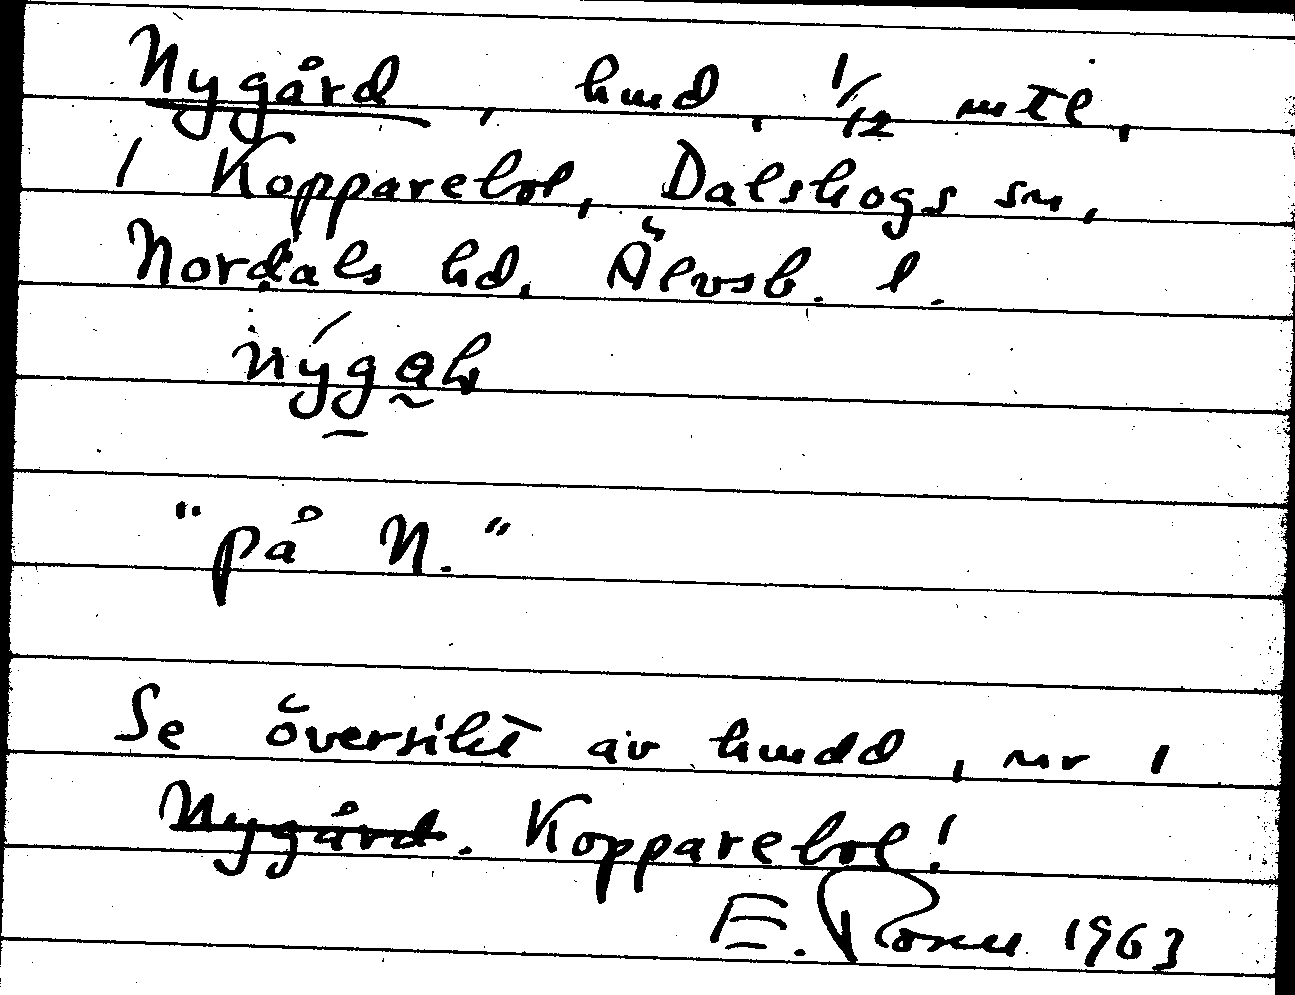 Nygård, hmd, 1/12 mtl,
1 Kopparebol, Dalskogs sn,
Nordals hd. Älvsb. l.
nýgaḷ
"på N."
Se översikt av hmdd, nr 1
Nygård. Kopparebol!
E. Rosell 1963